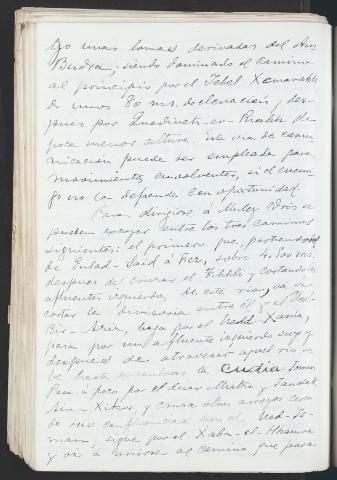 go unas lomas derivadas del Ain
Budra, siendo dominado el camino
al principio por el Yebel
de unos 80 ms. de elevacion, des-
pues por de
poca menor altura. Esta via de comu-
nicacion puede ser empleada para
movimientos envolventes, si el enemi-
go no la defiende con oportunidad.
Para dirigirse á Muley Dris se
pueden escoger entre los tres caminos
siguientes: el primero que, partiendo
de Eulad-Said á Fez, sobre 4.500 ms.
despues de cruzar el y cortando los
afluentes izquierdos de este rio, vá á
cortar la divisoria entre él y el
baja por el Uedd-Xania,
pasa por un afluente izquierdo suyo y
despues de atravesar aquel rio su-
be hasta encontrar la Cudia
Pasa á poco por el duar y
Ain-Xikor, y cruza otros arroyos cerca
de sus confluencias con el Ued-To-
man, sigue por el Xaba-el-Hhamra
y vá á unirse al camino que pasa